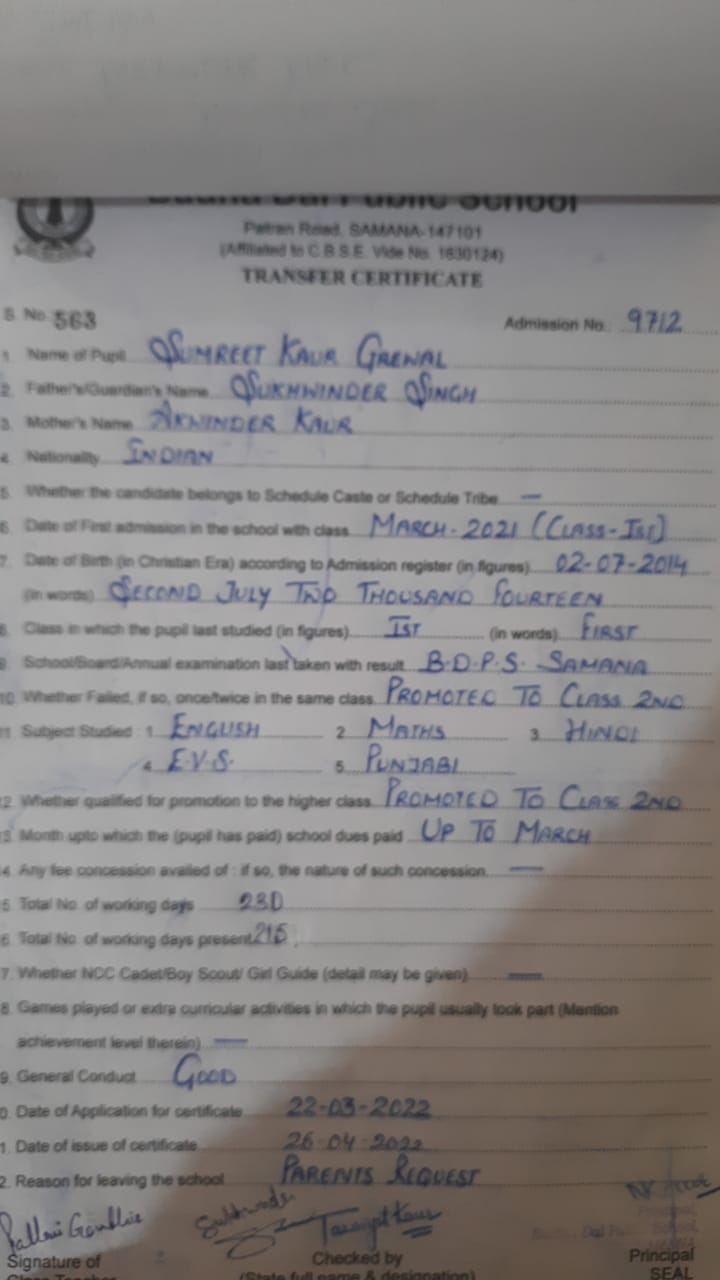 Public School
Patran Road, SAMANA-147101
(Affiliated to C.B.S.E. Vide No. 1630124)
TRANSFER CERTIFICATE
S. No. 563 Admission No.: 9712
1. Name of Pupil SUMREET KAUR GREWAL
2. Father's/Guardian's Name SUKHWINDER SINGH
3. Mother's Name KAUR
4. Nationality INDIAN
5. Whether the candidate belongs to Schedule Caste or Schedule Tribe —
6. Date of First admission in the school with class MARCH-2021 (CLASS-IST)
7. Date of Birth (in Christian Era) according to Admission register (in figures) 02-07-2014
(in words) SECOND JULY TWO THOUSAND FOURTEEN
8. Class in which the pupil last studied (in figures) IST (in words) FIRST
9. School/Board/Annual examination last taken with result B.D.P.S. SAMANA
10. Whether Failed, if so, once/twice in the same class PROMOTED TO CLASS 2ND
11. Subject Studied : 1. ENGLISH 2. MATHS 3. HINDI
4. E.V.S. 5. PUNJABI
12. Whether qualified for promotion to the higher class PROMOTED TO CLASS 2ND
13. Month upto which the (pupil has paid) school dues paid UP TO MARCH
4. Any fee concession availed of : if so, the nature of such concession. —
5. Total No. of working days 230
6. Total No. of working days present 215
7. Whether NCC Cadet/Boy Scout/ Girl Guide (detail may be given) —
8. Games played or extra curricular activities in which the pupil usually took part (Mention
achievement level therein) —
9. General Conduct GOOD
0. Date of Application for certificate 22-03-2022
1. Date of issue of certificate 26-04-2022
2. Reason for leaving the school PARENTS REQUEST
Signature of Checked by Principal
Class Teacher (State full name & designation) SEAL